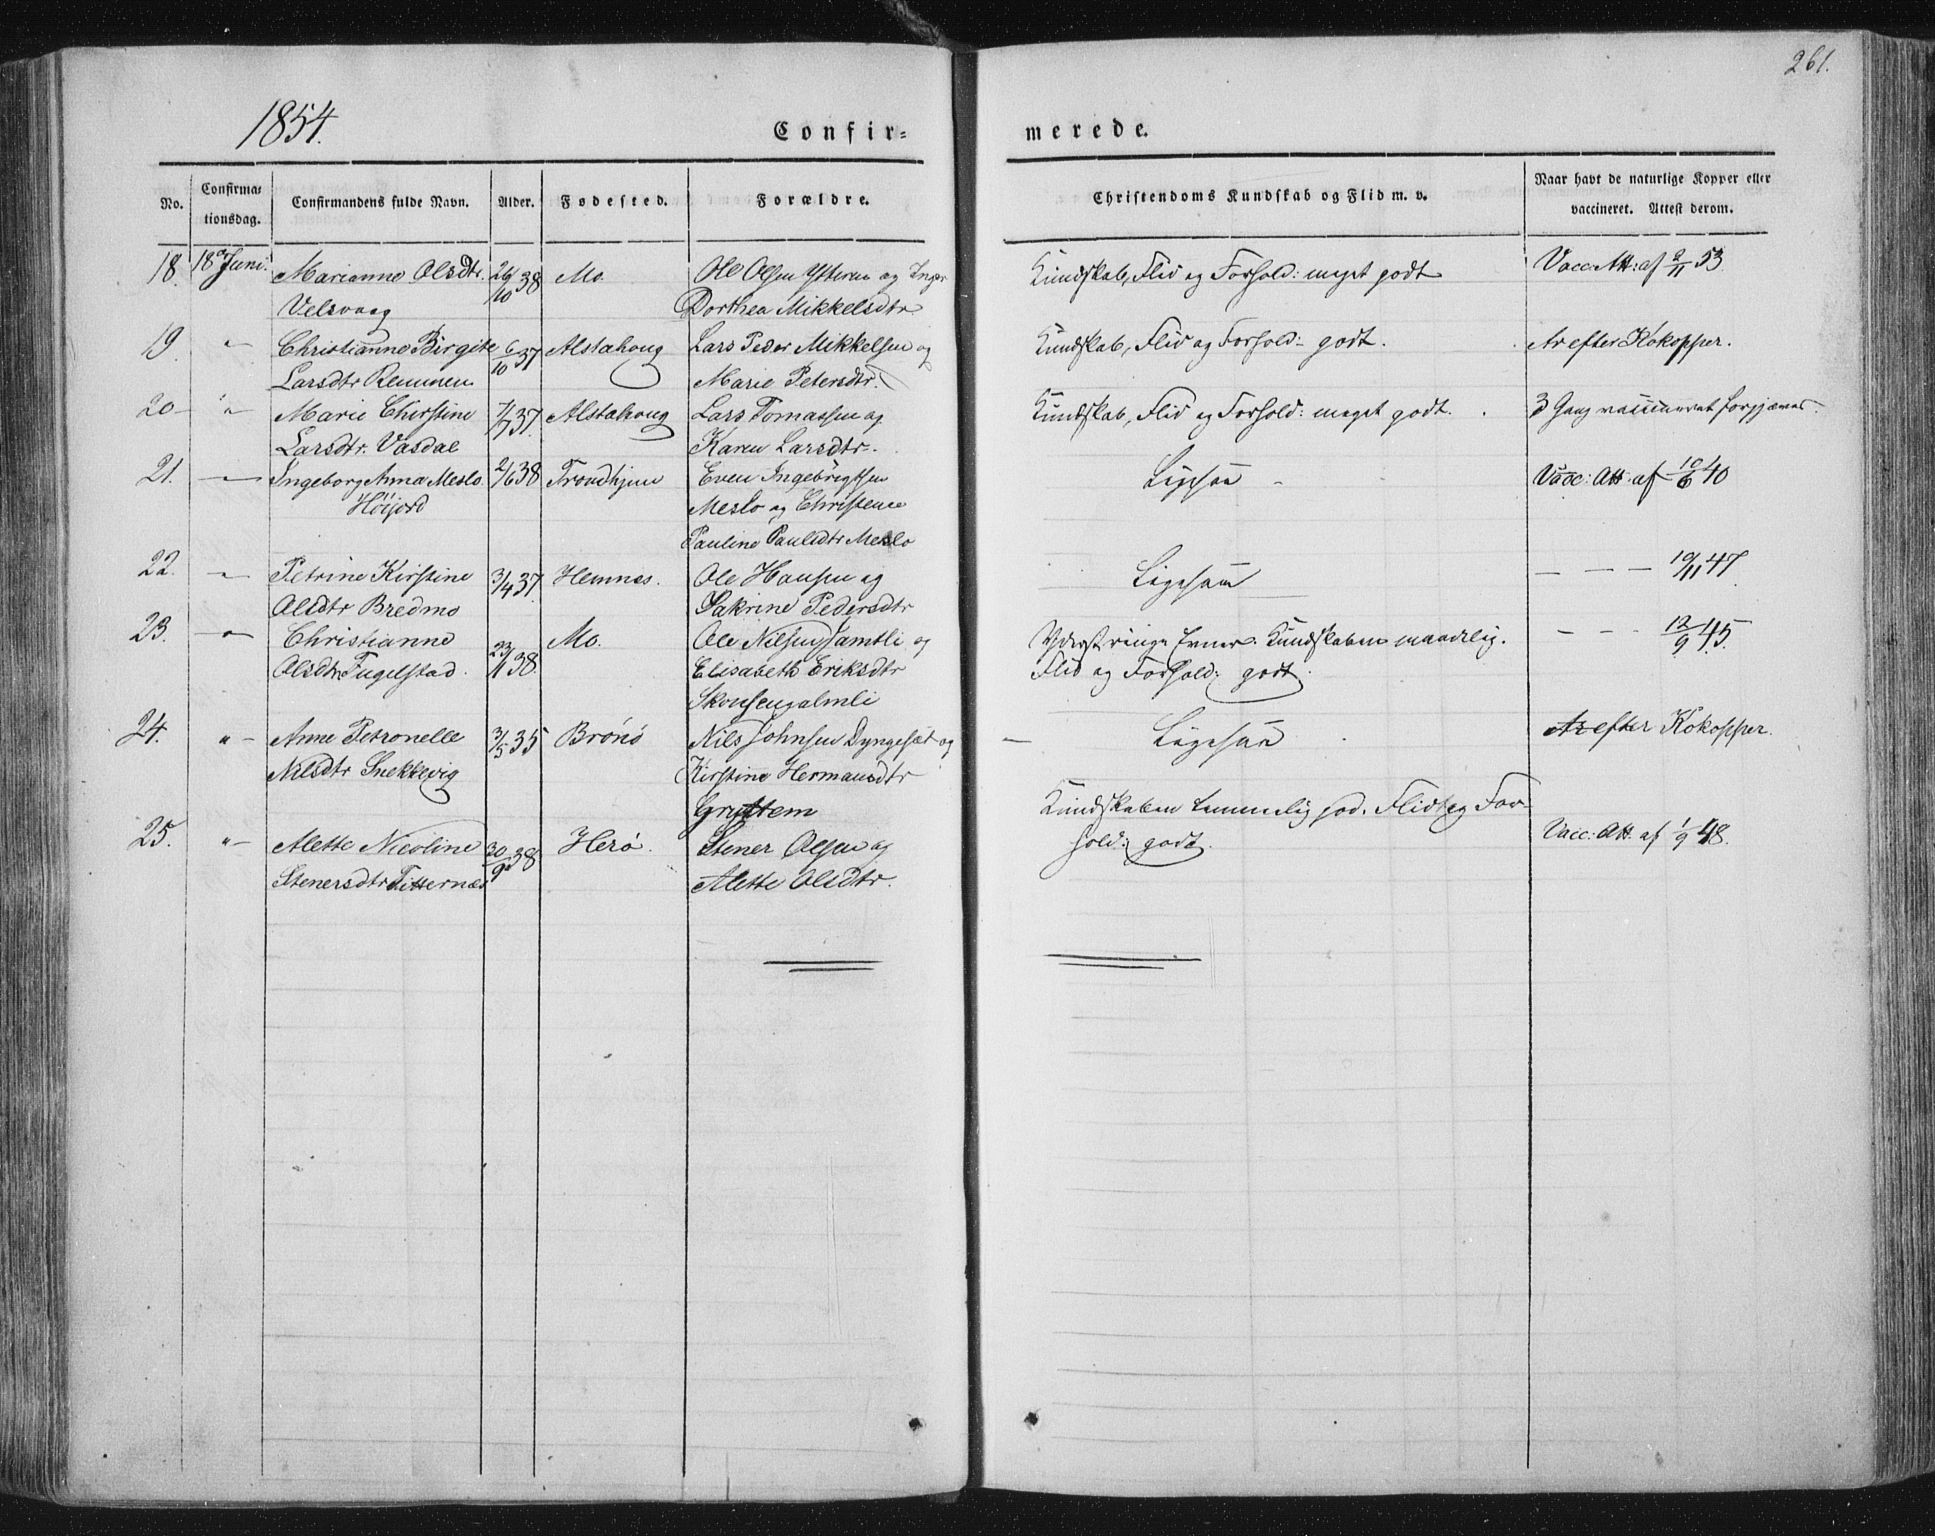 261.
1854.
Confir= merede.
No. Confirma= tionsdag. Confirmandens fulde Navn. Alder. Fødested. Forældre. Christendoms Kundskab og Flid m. v. Naar havt de naturlige Kopper eller vaccineret. Attest derom.
18. 18de Juni. Marianne Olsdtr. 26/10 38 Mo. Ole Olsen Ytteren og Inger Kundskab, Flid og Forhold: meget godt Vacc: Att: af 2/11 53
Velsvaag Dorthea Mikkelsdtr
19. " Christianne Birgite 6/10 37 Alstahoug Lars Peder Mikkelsen og Kundskab, Flid og Forhold: godt. Ar efter Kokopper.
Larsdtr Remmen Marie Petersdtr.
20 " Marie Chirstine 7/7 37. Alstahoug Lars Tomassen og Kundskab, Flid og Forhold: meget godt. 3 Gang vaccineret forgjæves.
Larsdtr. Vasdal Karen Larsdtr.
21. " Ingeborg Anna Meslo 2/6 38 Trondhjem Even Ingebrigtsen Ligesaa Vacc: Att. af 10/6 40
Høijord Meslo og Christence
Pauline Paulsdtr Meslo
22. " Petrine Kirstine 3/4 37. Hemnes. Ole Hansen og Ligesaa — — — 10/11 47
Olsdtr Bredmo Sakrine Pedersdtr
23. " Christianne 23/11 38. Mo. Ole Nilsen Jamtli og Yderst ringe Evner. Kundskaben maadelig. — — — 12/9 45.
Olsdtr Fugelstad. Elisabeth Eriksdtr Flid og Forhold: godt.
Skonsengalmli
24. " Anne Petronelle 3/5 35 Brønø Nils Johnsen Dyngesæt og — Ligesaa Ar efter Kokopper.
Nilsdtr Snekkevig Kirstine Hermansdtr
Gryttem
25. " Alette Nicoline 30/9 38 Herø. Stener Olsen og Kundskaben temmelig god. Flid og For-
Stenersdtr Titternæs Alette Olsdtr. hold: godt. Vacc: Att. af 1/9 48.